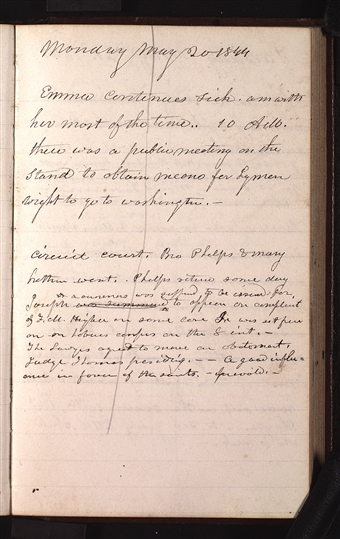 Monday May 20 1844
Emma continues sick. am with
her most of the time.. 10 A.M.
there was a public meeting on the
Stand to obtain means for Lyman
Wight to go to washington.–
circuit court. Bro Phelps & many
others went. Phelps return same day
a summons was issued to be issued for
Joseph was summoned to appear on complaint
of F. M. Higbee on some case was set free
on on habeus corpus on the 8 inst. –
The Judges agree to move an abatement
Judge Thomas presiding. – – A good influ-
ence in favor of the saints. – prevails. –